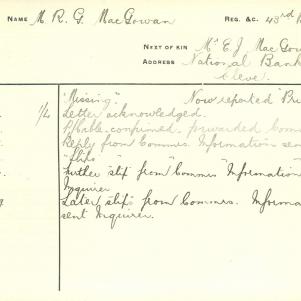 NAME M. R. G. MacGowan REG. &C. 43rd B
NEXT OF KIN Mr E. J. MacGow
ADDRESS National Bank
Cleve.
"Missing" Now reported "Pri
1/4 Letter acknowledged.
P/Cable confirmed, forwarded Comm
Reply from Commrs. Information sen
"Slips"
Further "slip" from "Commrs" Information
Inquirer
Later "slip" from Commrs. Informa
sent Inquirer.